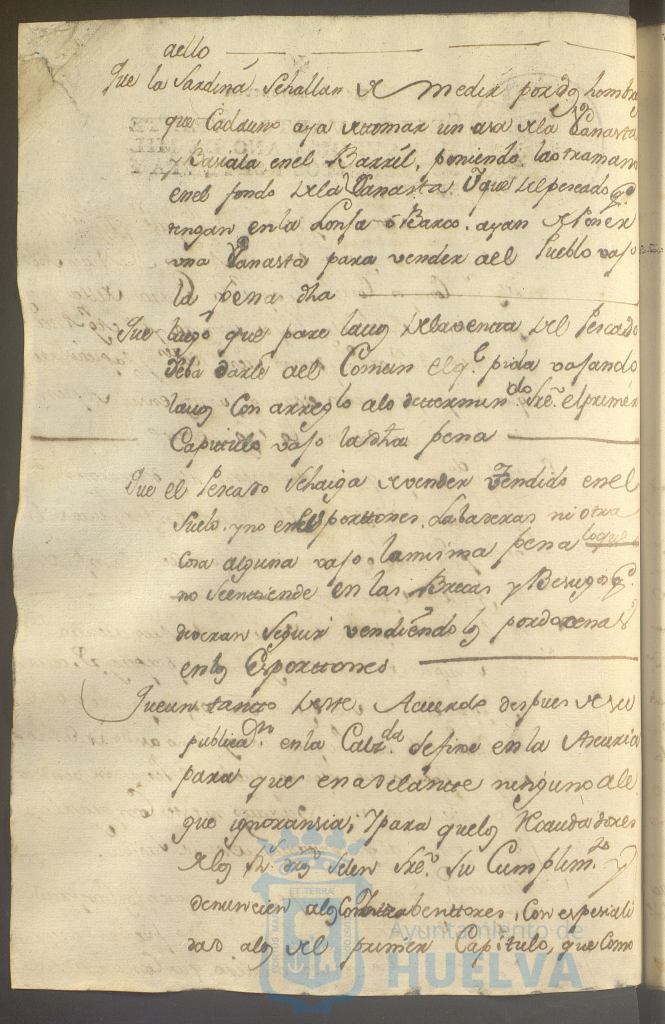 aello
Que la Sardina Sehallan de Medir por dos hombres
que Cada uno aya de tomar un asa de la Canasta
y basiala en el Barril, poniendo las tramanos
en el fondo de la Canasta y que del pescado q.e
tengan en la Lonja ó Barco ayan de Poner
una Canasta para vender ael Pueblo vajo
la pena dha
Que luego que pare la vos de la venta del Pescado
deba darle ael Comun el q.e pida vajando
la vos Con arreglo alo determin.do Sre. el primer
Capitulo vajo la dha pena
Que el Pescado Sehaiga de vender tendido en el
Suelo, y no en Esporttones, ni otra
Cosa alguna vajo la misma pena loque
no Seentiende en las Brecas y Besugos q.e
deveran Seguir vendiendolos por dosenas
en los Esporttones
Que un tanto deste Acuerdo despues de su
publica.on en la Calz.da defixe en la
para que en adelante ninguno ale
gue ignoransia, y para quelos Recaudadores
de los R.s dros Selen Sre. Su Cumplim.to y
denuncien alos Contrabenttores, Con espesiali
dad alos del primer Capitulo, que Como
ET TERRÆ
Ayuntamiento de
HUELVA